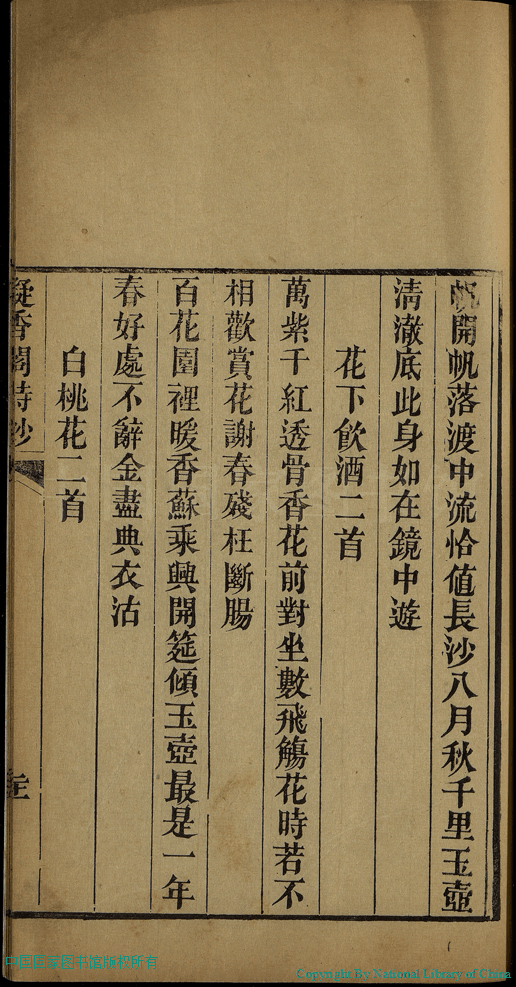 帆開帆落渡中流恰值長沙八月秋千里玉壺
清澈底此身如在鏡中遊
花下飲酒二首
萬紫千紅透骨香花前對坐數飛觴花時若不
相歡賞花謝春殘枉斷腸
百花圍裡暖香蘇乘興開筵傾玉壺最是一年
春好處不辭金盡典衣沽
白桃花二首
凝香閣詩鈔
中国国家图书馆版权所有
Copyright By National Library of China